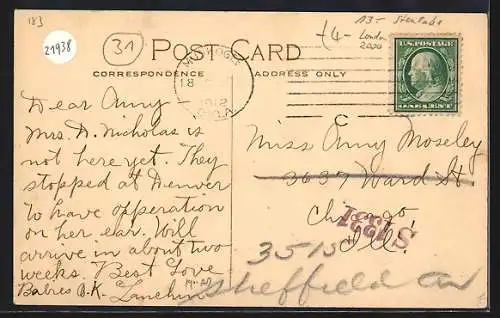 183
21938
31
+4-
A3-
London
2000
POST CARD
CORRESPONDENCE
ADDRESS ONLY
U.S. POSTAGE
ONE CENT
MUSKOGEE
18
1912
OKLA
C
Dear Amy
Mrs. D. Nicholas is
not here yet. They
stopped at Denver
to have opperation
on her ear. Will
arrive in about two
weeks. Best Love
Babies O.K.
Miss Amy Moseley
3637 Ward St
Chicago
Ill.
3515
Sheffield Av